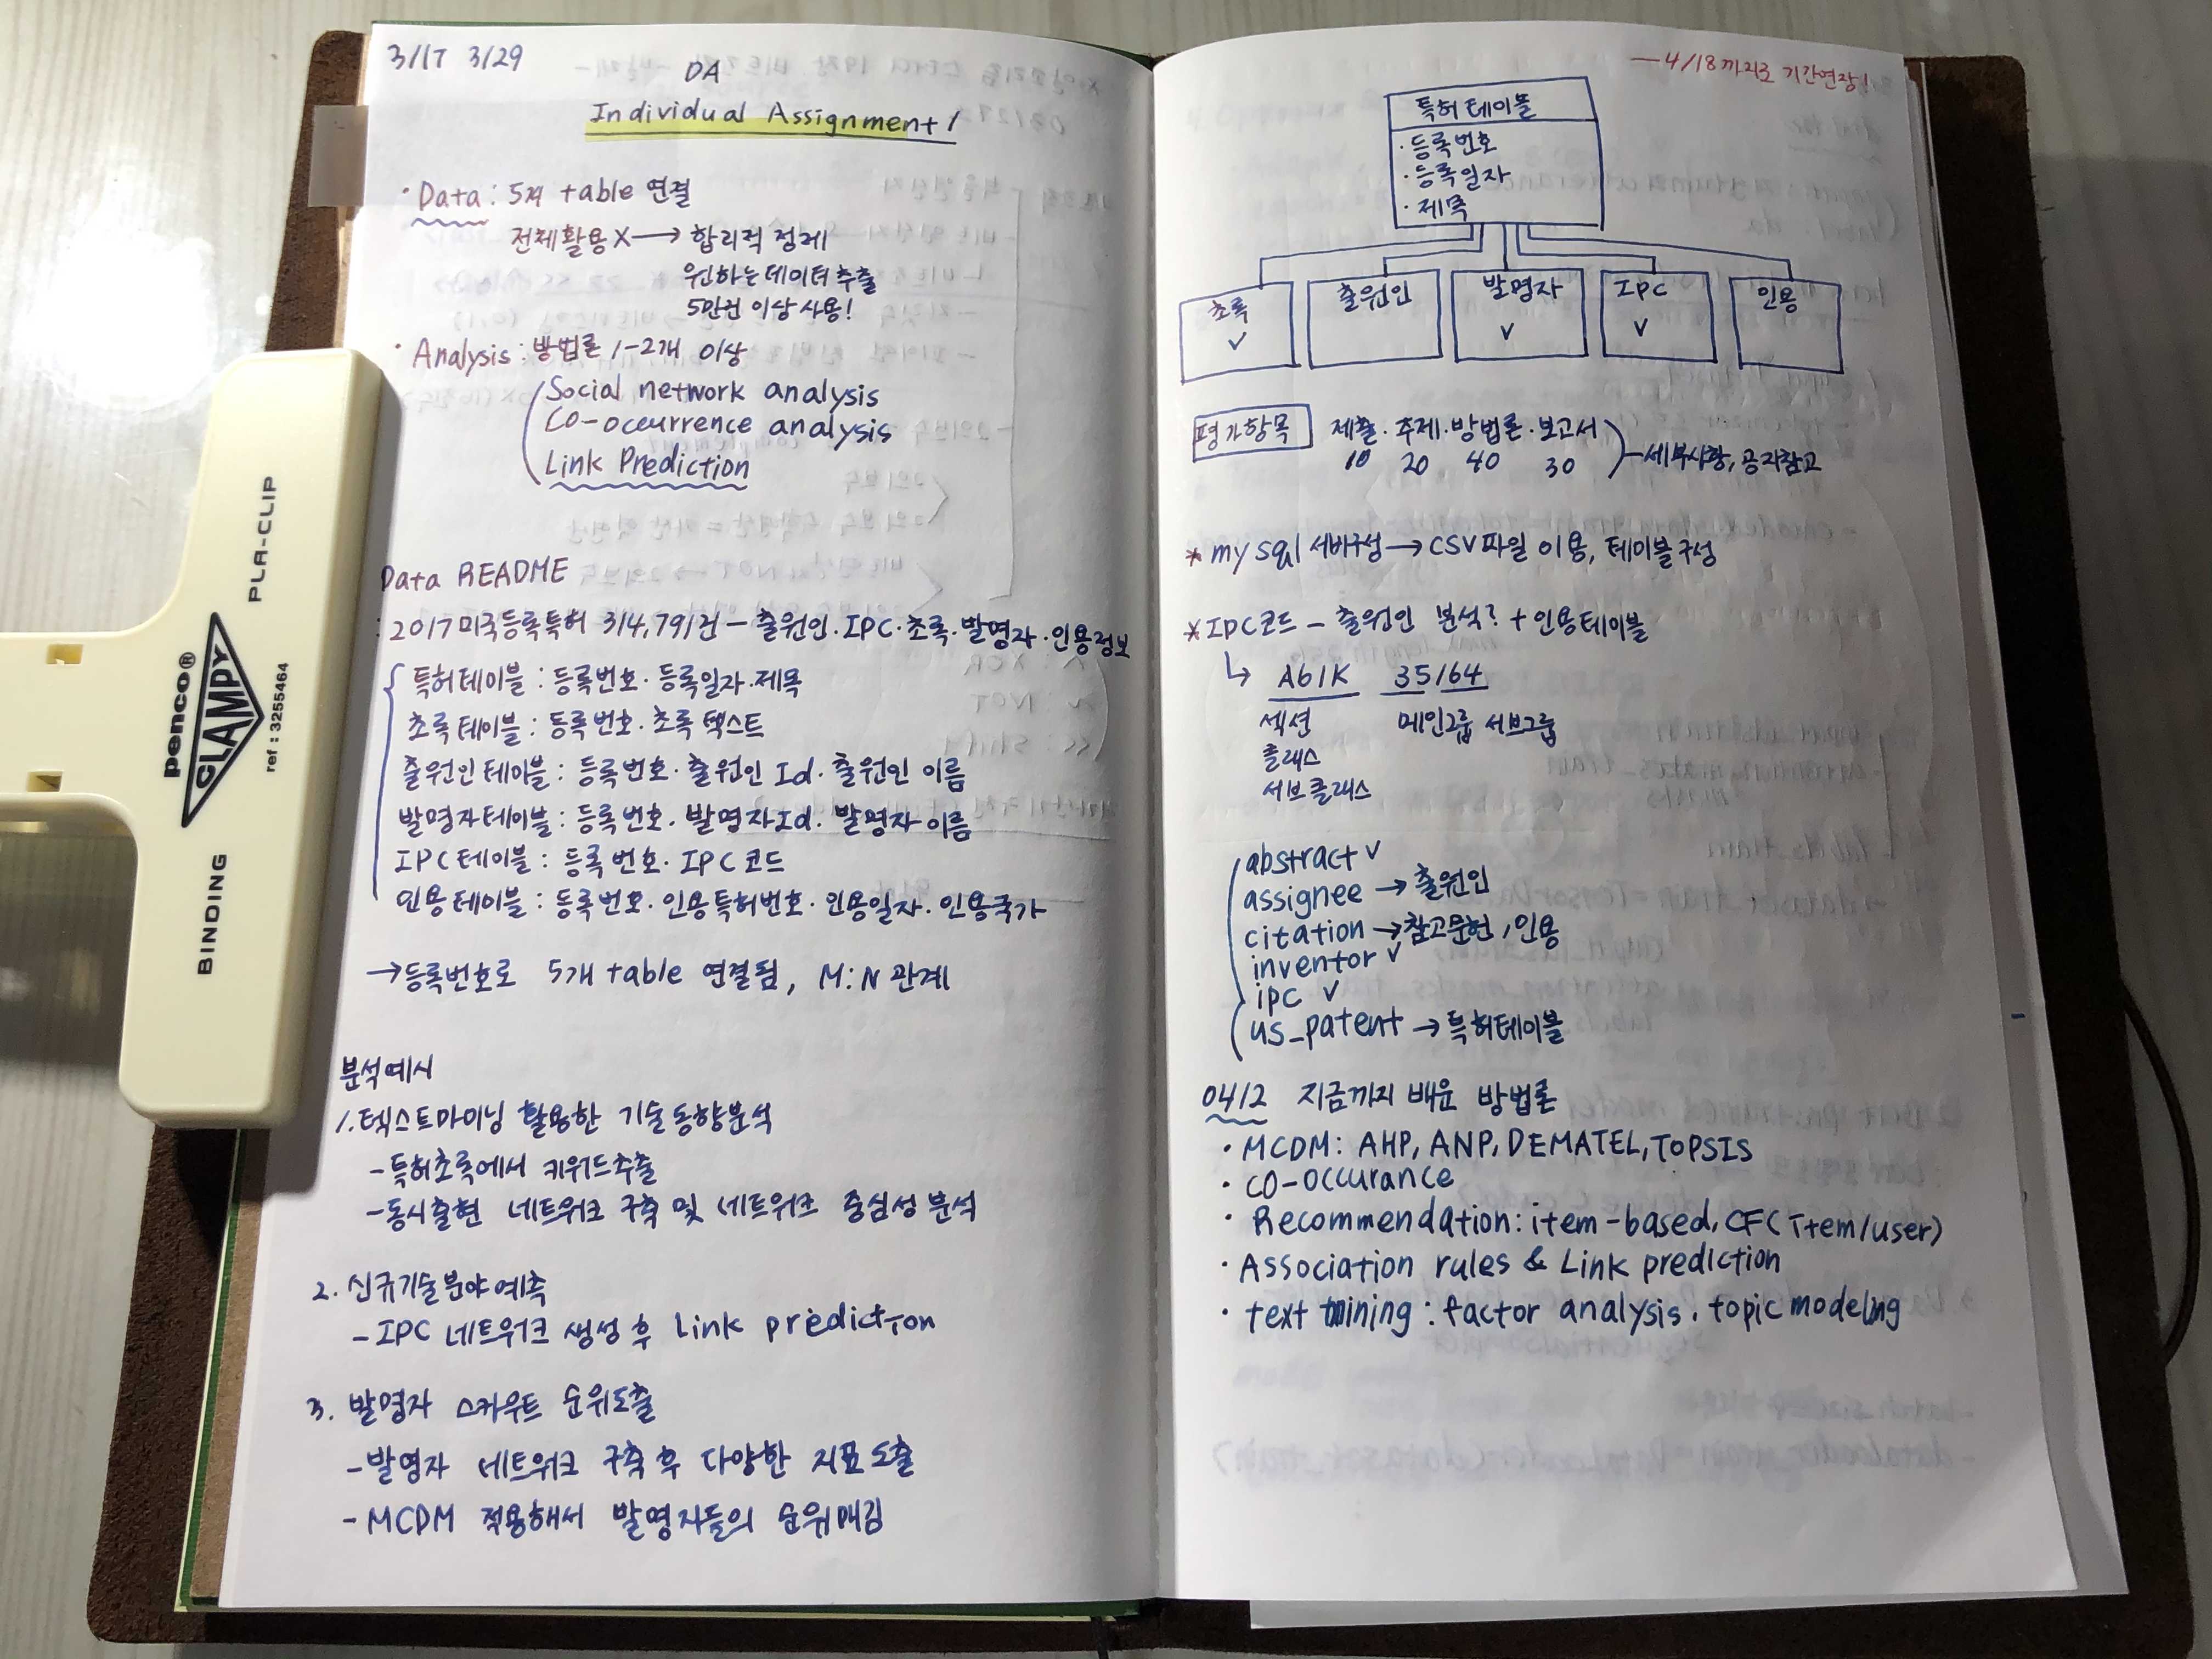 3/17 3/29
DA
Individual Assignment 1
· Data : 5개 table 연결
전체활용 X → 합리적 정제
원하는 데이터 추출
5만건 이상 사용!
· Analysis : 방법론 1-2개 이상
Social network analysis
CO-occurrence analysis
Link Prediction
Data README
: 2017 미국등록특허 314,791건 - 출원인·IPC·초록·발명자·인용정보
특허테이블 : 등록번호·등록일자·제목
초록테이블 : 등록번호·초록텍스트
출원인테이블 : 등록번호·출원인 Id·출원인 이름
발명자테이블 : 등록번호·발명자Id·발명자 이름
IPC테이블 : 등록번호·IPC코드
인용테이블 : 등록번호·인용특허번호·인용일자·인용국가
→ 등록번호로 5개 table 연결됨, M:N 관계
분석예시
1. 텍스트마이닝 활용한 기술동향분석
- 특허초록에서 키워드추출
- 동시출현 네트워크 구축 및 네트워크 중심성 분석
2. 신규기술분야예측
- IPC 네트워크 생성 후 Link prediction
3. 발명자 스카우트 순위도출
- 발명자 네트워크 구축 후 다양한 지표 도출
- MCDM 적용해서 발명자들의 순위매김
PLA-CLIP
penco®
CLAMPY
ref : 3255464
BINDING
— 4/18까지로 기간연장!
특허 테이블
· 등록번호
· 등록일자
· 제목
초록 출원인 발명자 IPC 인용
✓ ✓ ✓
평가항목 제출·주제·방법론·보고서
10 20 40 30 - 세부사항, 공지참고
* my sql 서버구성 → CSV파일 이용, 테이블 구성
* IPC코드 - 출원인 분석? + 인용테이블
↳ A61K 35/64
섹션 메인그룹 서브그룹
클래스
서브클래스
abstract ✓
assignee → 출원인
citation → 참고문헌, 인용
inventor ✓
ipc ✓
us_patent → 특허테이블
0412 지금까지 배운 방법론
· MCDM : AHP, ANP, DEMATEL, TOPSIS
· CO-occurance
· Recommendation : item-based, CF(Item/user)
· Association rules & Link prediction
· text mining : factor analysis, topic modeling